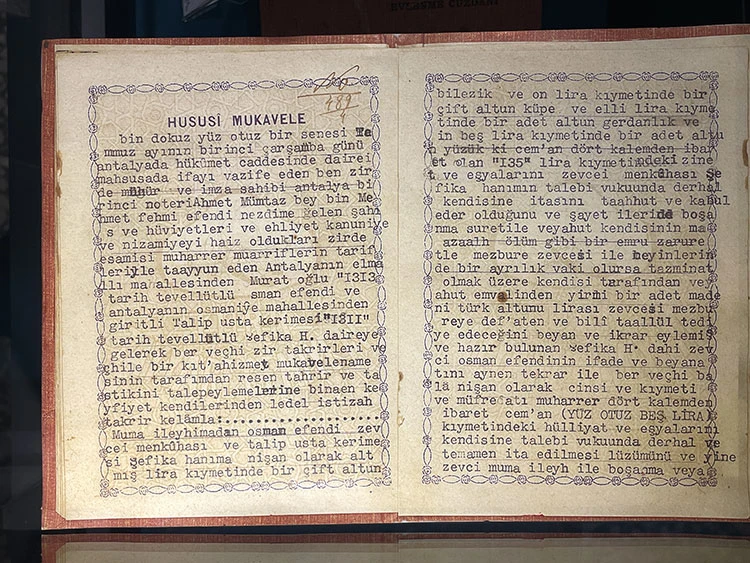 EVLENME CÜZDANI
489
4
HUSUSİ MUKAVELE
bin dokuz yüz otuz bir senesi Ta
mmuz ayının birinci çarşamba günü
antalyada hükümet caddesinde dairei
mahsusada ifayı vazife eden ben zir
de mühür ve imza sahibi antalya bi
rinci noteriAhmet Mümtaz bey bin Me
hmet fehmi efendi nezdime gelen şahi
s ve hüviyetleri ve ehliyet kanuniye
ve nizamiyeyi haiz oldukları zirde
esamisi muharrer muarriflerin tarif
leriyle taayyun eden Antalyanın elma
lı mahallesinden Murat oğlu "I3I3
tarih tevellütlü sman efendi ve
antalyanın osmaniye mahallesinden
giritli Talip usta kerimesi"I3II"
tarih tevellütlü şefika H. daireye
gelerek ber veçhi zir takrirleri ve
çhile bir kıt'ahizmet mukavelename
sinin tarafımdan resen tahrir ve ta
stikini talepeylemelerine binaen ke
yfiyet kendilerinden ledel istizah
takrir kelâmla:..................
Muma ileyhimadan osman efendi zev
cei menkûhası ve talip usta kerime
si şefika hanıma nişan olarak alt
mış lira kıymetinde bir çift altun
bilezik ve on lira kıymetinde bir
çift altun küpe ve elli lira kıyme
tinde bir adet altun gerdanlık ve
in beş lira kıymetinde bir adet altu
n yüzük ki cem'an dört kalemden ibar
et olan "I35" lira kıymetindeki zine
t ve eşyalarını zevcei menkûhesi Şe
fika hanımın talebi vukuunda derhal
kendisine itasını taahhut ve kabul
eder olduğunu ve şayet ileride boşa
nma suretile veyahut kendisinin ma
azaalh ölüm gibi bir emru zarure
tle mezbure zevcesi ile beyinlerin
de bir ayrılık vaki olursa tazminat
olmak üzere kendisi tarafından vey
ahut emvalinden yirmi bir adet made
ni türk altunu lirası zevcesi mezbu
reye def'aten ve bilâ taallül tedi
ye edeceğini beyan ve ikrar eylemiş
ve hazır bulunan şefika H. dahi zev
ci osman efendinin ifade ve beyana
tını aynen tekrar ile ber veçhi ba
lâ nişan olarak cinsi ve kıymeti
ve müfredatı muharrer dört kalemden
ibaret cem'an (YÜZ OTUZ BEŞ LİRA)
kıymetindeki hülliyat ve eşyalarını
kendisine talebi vukuunda derhal ve
temamen ita edilmesi lüzümünü ve yine
zevci muma ileyh ile boşanma veya